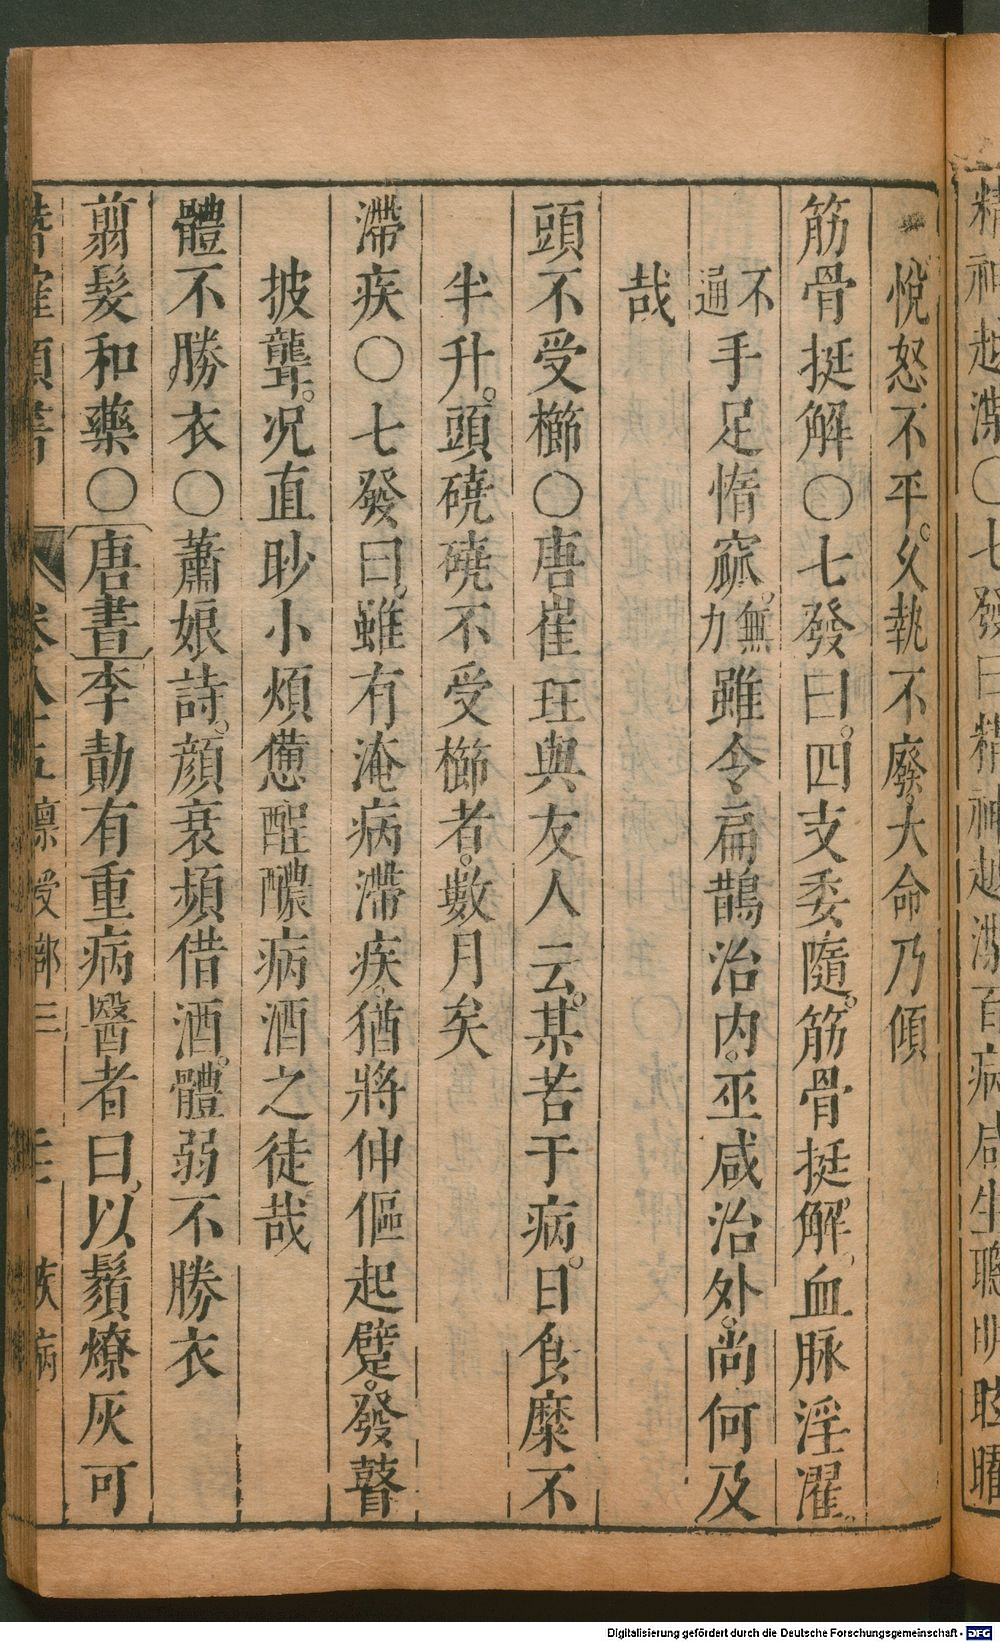 精神越渫〇七發曰精神越渫百病咸生聰明眩曜
悅怒不平久執不廢大命乃傾
筋骨挺解〇七發曰四支委隨筋骨挺解血脉淫濯
不通手足惰窳無力雖令扁鵲治内巫咸治外尚何及
哉
頭不受櫛〇唐崔珏與友人云某苦于病日食糜不
半升頭磽磽不受櫛者數月矣
滯疾〇七發曰雖有淹病滯疾猶將伸傴起躄發瞽
披聾况直眇小煩懣酲醲病酒之徒哉
體不勝衣〇蕭娘詩顔衰頻借酒體弱不勝衣
翦髮和藥〇唐書李勣有重病醫者曰以鬚燎灰可
卷八十五 稟受部三 疾病
Digitalisierung gefördert durch die Deutsche Forschungsgemeinschaft - DFG